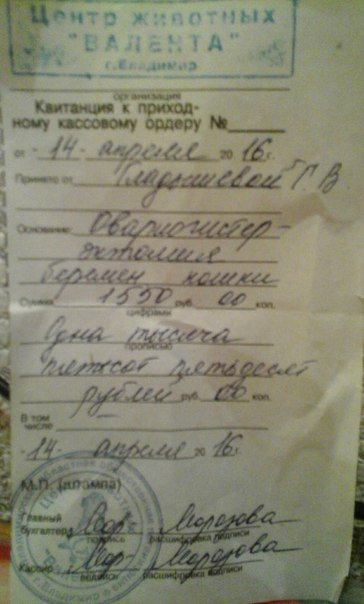 Центр животных
"ВАЛЕНТА"
г. Владимир
организация
Квитанция к приход-
ному кассовому ордеру №
от -14- апреля 2016г.
Принято от Гладышевой Г. В
Основание Овариогистер-
эктомия
беремен кошки
Сумма 1550 руб. 00 коп.
цифрами
Одна тысяча
прописью
пятьсот пятьдесят
рублей руб. 00 коп.
В том
числе
-14- апреля 2016г.
М.П. (штампа)
Главный
бухгалтер Мор- Морозова
подпись расшифровка подписи
Кассир Мор- Морозова
подпись расшифровка подписи
г. Владимир